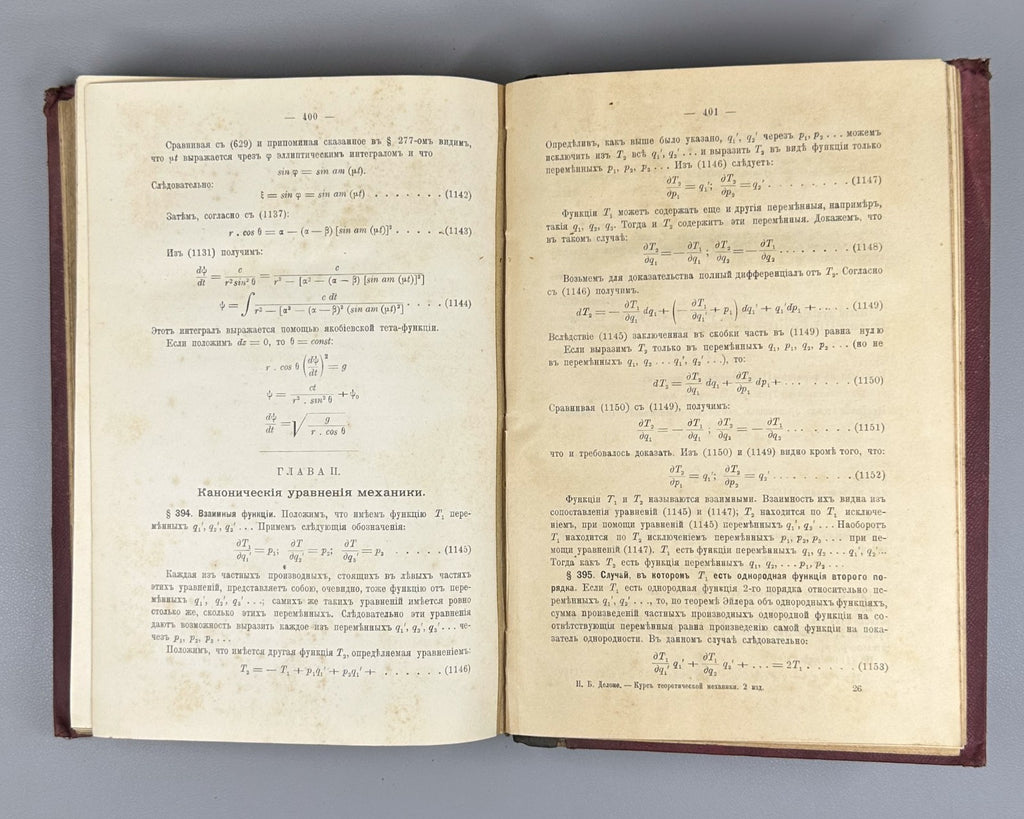 — 400 —
Сравнивая съ (629) и припоминая сказанное въ § 277-омъ видимъ,
что μt выражается чрезъ φ эллиптическимъ интеграломъ и что
sin φ = sin am (μt).
Слѣдовательно:
ξ = sin φ = sin am (μt) . . . . . . . . (1142)
Затѣмъ, согласно съ (1137):
r . cos θ = α — (α — β) [sin am (μt)]² . . . . . (1143)
Изъ (1131) получимъ:
dψ/dt = c/(r² sin² θ) = c/(r² — [α² — (α — β) [sin am (μt)]²]
ψ = ∫ c dt/(r² — [α² — (α — β)² (sin am (μt)²] . . . . (1144)
Этотъ интегралъ выражается помощью якобіевской тета-функціи.
Если положимъ dz = 0, то θ = const:
r . cos θ (dψ/dt)² = g
ψ = ct/(r² . sin² θ) + ψ₀
dψ/dt = √(g/(r . cos θ))
ГЛАВА II.
Каноническія уравненія механики.
§ 394. Взаимныя функціи. Положимъ, что имѣемъ функцію T₁ пере-
мѣнныхъ q₁', q₂', q₃' . . . Примемъ слѣдующія обозначенія:
∂T₁/∂q₁' = p₁; ∂T/∂q₂' = p₂; ∂T/∂q₃' = p₃ . . . . . . (1145)
Каждая изъ частныхъ производныхъ, стоящихъ въ лѣвыхъ частяхъ
этихъ уравненій, представляетъ собою, очевидно, тоже функцію отъ пере-
мѣнныхъ q₁', q₂', q₃' . . .; самихъ же такихъ уравненій имѣется ровно
столько же, сколько этихъ перемѣнныхъ. Слѣдовательно эти уравненія
даютъ возможность выразить каждое изъ перемѣнныхъ q₁', q₂', q₃' . . . че-
чезъ p₁, p₂, p₃ . . .
Положимъ, что имѣется другая функція T₂, опредѣляемая уравненіемъ:
T₂ = — T₁ + p₁q₁' + p₂q₂' + . . . . . . . (1146)
— 401 —
Опредѣливъ, какъ выше было указано, q₁', q₂' черезъ p₁, p₂ . . . можемъ
исключить изъ T₂ всѣ q₁', q₂' . . . и выразить T₂ въ видѣ функціи только
перемѣнныхъ p₁, p₂, p₃ . . . Изъ (1146) слѣдуетъ:
∂T₂/∂p₁ = q₁'; ∂T₂/∂p₂ = q₂' . . . . . . . . (1147)
Функція T₁ можетъ содержать еще и другія перемѣнныя, напримѣръ,
такія q₁, q₂, q₃. Тогда и T₂ содержитъ эти перемѣнныя. Докажемъ, что
въ такомъ случаѣ:
∂T₂/∂q₁ = — ∂T₁/∂q₁; ∂T₂/∂q₂ = — ∂T₁/∂q₂ . . . . . . . (1148)
Возьмемъ для доказательства полный дифференціалъ отъ T₂. Согласно
съ (1146) получимъ.
dT₂ = — ∂T₁/∂q₁ dq₁ + (— ∂T₁/∂q₁' + p₁) dq₁' + q₁'dp₁ + . . . . (1149)
Вслѣдствіе (1145) заключенная въ скобки часть въ (1149) равна нулю
Если выразимъ T₂ только въ перемѣнныхъ q₁, p₁, q₂, p₂ . . . (но не
въ перемѣнныхъ q₁, q₂ . . . q₁', q₂' . . .), то:
dT₂ = ∂T₂/∂q₁ dq₁ + ∂T₂/∂p₁ dp₁ + . . . . . . . . (1150)
Сравнивая (1150) съ (1149), получимъ:
∂T₂/∂q₁ = — ∂T₁/∂q₁; ∂T₂/∂q₂ = — ∂T₁/∂q₂ . . . . . . . (1151)
что и требовалось доказать. Изъ (1150) и (1149) видно кромѣ того, что:
∂T₂/∂p₁ = q₁'; ∂T₂/∂p₂ = q₂' . . . . . . . . (1152)
Функціи T₁ и T₂ называются взаимными. Взаимность ихъ видна изъ
сопоставленія уравненій (1145) и (1147); T₂ находится по T₁ исключе-
ніемъ, при помощи уравненій (1145) перемѣнныхъ q₁', q₂' . . . Наоборотъ
T₁ находится по T₂ исключеніемъ перемѣнныхъ p₁, p₂, p₃ . . . при по-
мощи уравненій (1147). T₁ есть функціи перемѣнныхъ q₁, q₂ . . . q₁', q₂'...
Тогда какъ T₂ есть функція перемѣнныхъ q₁, q₂, . . . p₁, p₂ . . .
§ 395. Случай, въ которомъ T₁ есть однородная функція второго по-
рядка. Если T₁ есть однородная функція 2-го порядка относительно пе-
ремѣнныхъ q₁', q₂' . . . , то, по теоремѣ Эйлера объ однородныхъ функціяхъ,
сумма произведеній частныхъ производныхъ однородной функціи на со-
отвѣтствующія перемѣнныя равна произведенію самой функціи на пока-
затель однородности. Въ данномъ случаѣ слѣдовательно:
∂T₁/∂q₁' q₁' + ∂T₁/∂q₂ q₂' + . . . = 2T₁ . . . . . . (1153)
Н. Б. Делоне. — Курсъ теоретической механики. 2 изд. 26